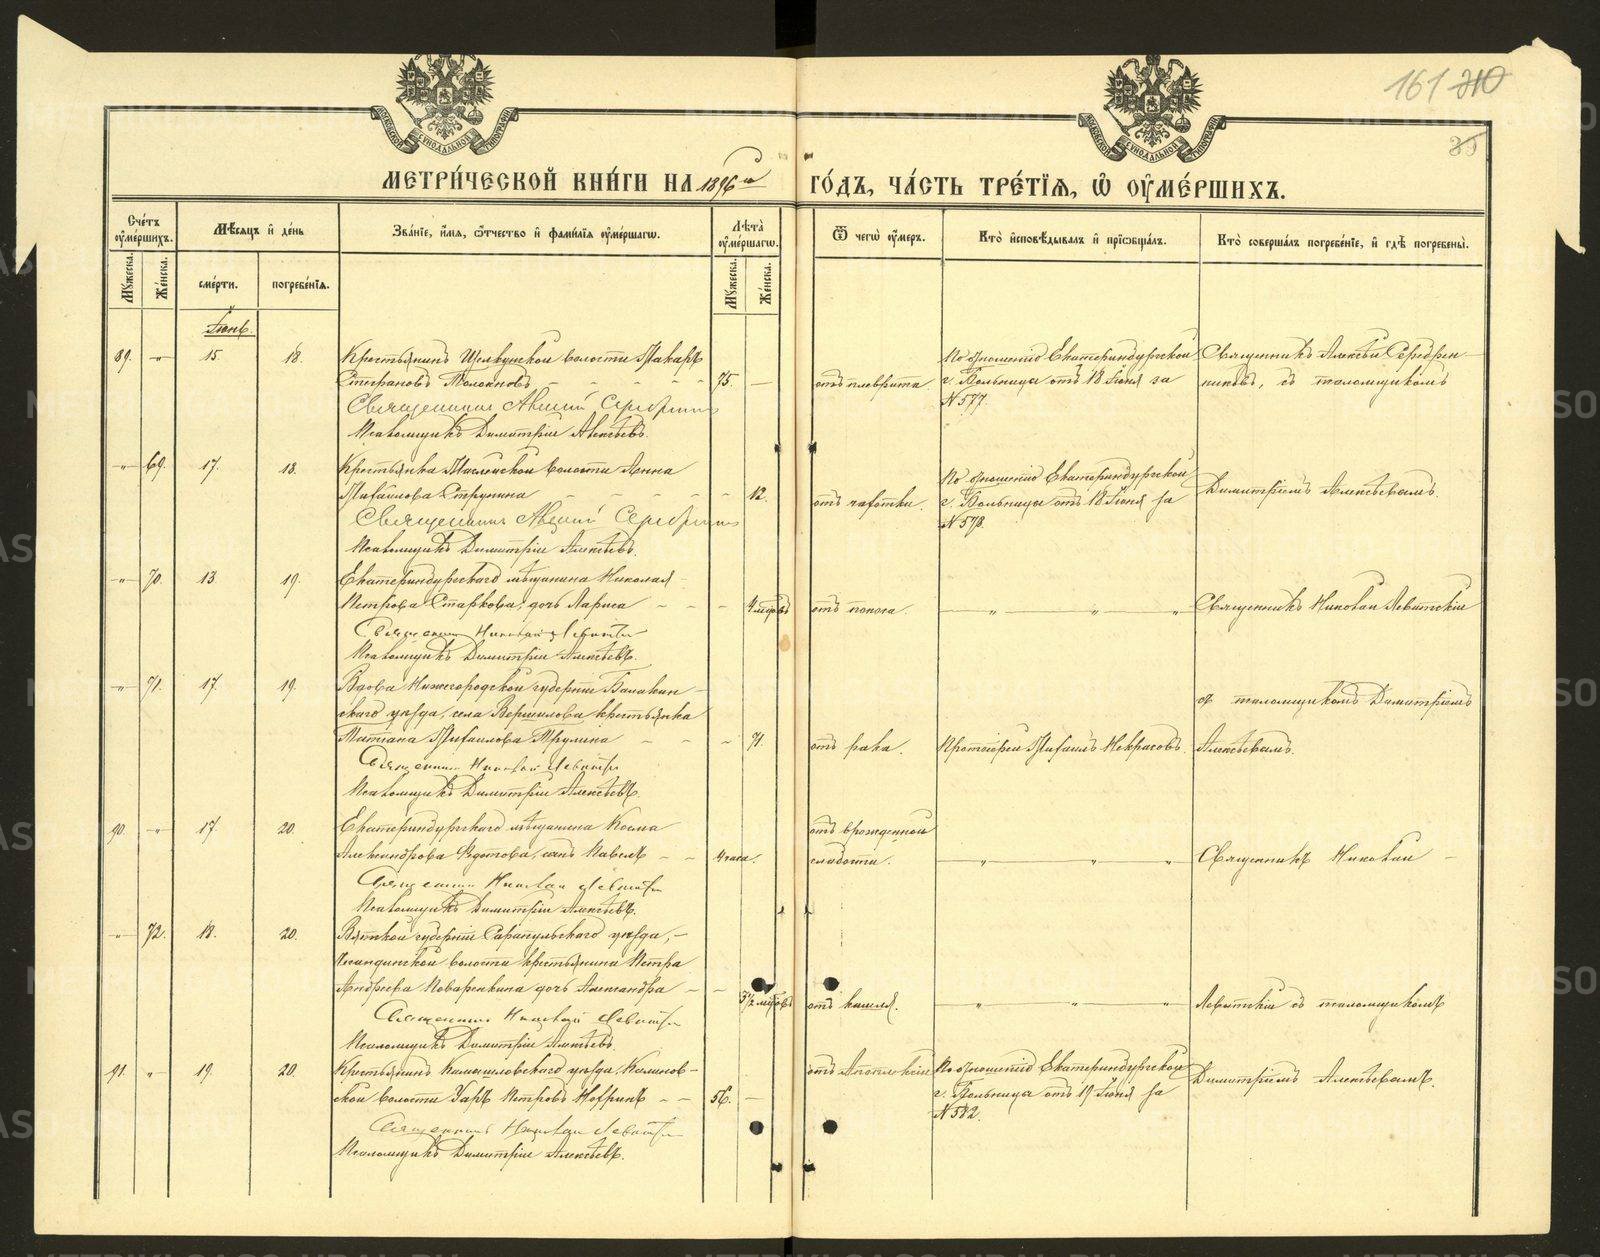 161 210
35
МЕТРИЧЕСКОЙ КНИГИ НА 1896 й ГОДЪ, ЧАСТЬ ТРЕТІЯ, Ѿ ОУМЕРШИХЪ.
Счетъ оумершихъ.
Мѣсяцъ и день
Званіе, имя, отчество и фамилія оумершагѡ.
Лѣта оумершагѡ.
Ѿ чегѡ оумеръ.
Кто исповѣдывалъ и пріѡбщалъ.
Кто совершалъ погребеніе, и гдѣ погребены.
Мужеска.
Женска.
смерти.
погребенія.
Мужеска.
Женска.
Іюнь.
89. " 15. 18. Крестьянинъ Щелкунской волости Макаръ
Стефановъ 75. — отъ плеврита
По отношенію Екатеринбургской
г. больницы отъ 18 Іюня за
№ 577.
Священникъ Алексій Серебрен-
никовъ, съ псаломщикомъ
Священникъ Алексій Серебренниковъ
Псаломщикъ Димитрій Алексѣевъ.
" 69. 17. 18. Крестьянка волости Анна
Михаилова Струнина 12. отъ чахотки.
По отношенію Екатеринбургской
г. больницы отъ 18 Іюня за
№ 578.
Димитріемъ Алексѣевымъ.
Священникъ Алексій Серебренниковъ
Псаломщикъ Димитрій Алексѣевъ.
" 70. 13 19. Екатеринбургскаго мѣщанина Николая
Петрова Старкова, дочь Лариса 4 мѣсяцевъ отъ поноса. " " " Священникъ Николай Левитскій
Священникъ Николай Левитскій
Псаломщикъ Димитрій Алексѣевъ.
" 71. 17. 19. Вдова Нижегородской губерніи Балахин-
скаго уѣзда, села Вершилова крестьянка
Татіана Михаилова 71. отъ рака. Протоіерей Михаилъ Некрасовъ.
съ псаломщикомъ Димитріемъ
Алексѣевымъ.
Священникъ Николай Левитскій
Псаломщикъ Димитрій Алексѣевъ.
90. " 17. 20. Екатеринбургскаго мѣщанина Косма
Александрова Ѳдотова, сынъ Павелъ 4 часа.
отъ врожденной
слабости. " " " Священникъ Николай
Священникъ Николай Левитскій
Псаломщикъ Димитрій Алексѣевъ.
" 72. 18. 20. Вятской губерніи Сарапульскаго уѣзда,
волости крестьянина Петра
Андреева Поваренкина дочь Александра 3 1/2 мѣсяцевъ отъ кашля. " " " Левитскій съ псаломщикомъ
Священникъ Николай Левитскій
Псаломщикъ Димитрій Алексѣевъ.
91. " 19. 20. Крестьянинъ Камышловскаго уѣзда, Калинов-
ской волости Уаръ Петровъ 56. — отъ Апоплексіи
По отношенію Екатеринбургской
г. больницы отъ 19 Іюня за
№ 582.
Димитріемъ Алексѣевымъ.
Священникъ Николай Левитскій
Псаломщикъ Димитрій Алексѣевъ.